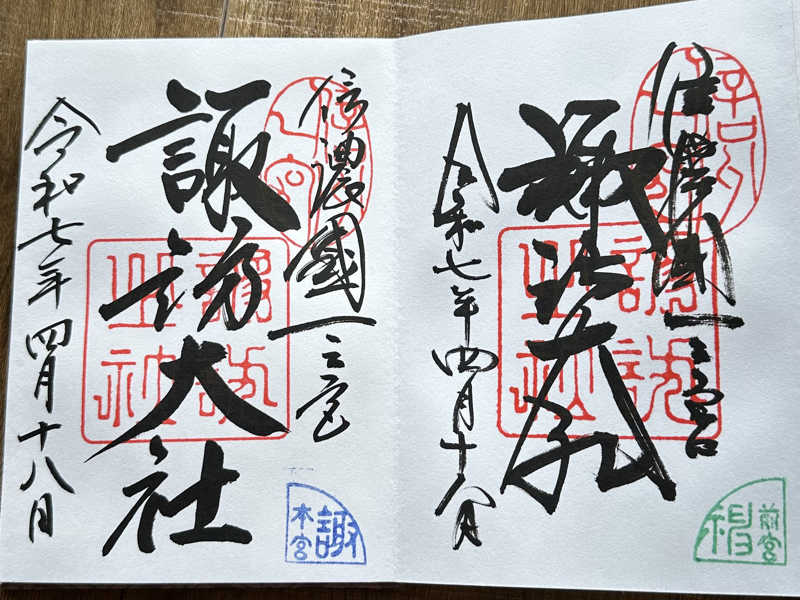 信濃國一之宮
諏訪大社
令和七年四月十八日
諏訪
本宮
信濃國一之宮
諏訪大社
令和七年四月十八日
前宮